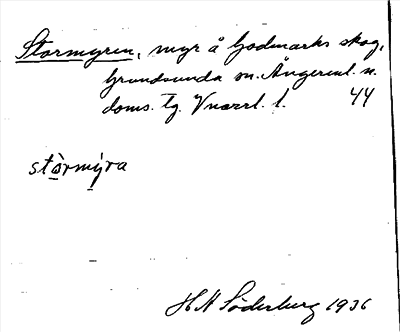 Stormyren, myr å Godmarks skog,
Grundsunda sn. Ångerml. n.
doms. tg. Vnorrl. l. 44
stòrmýra
H H Söderberg 1936